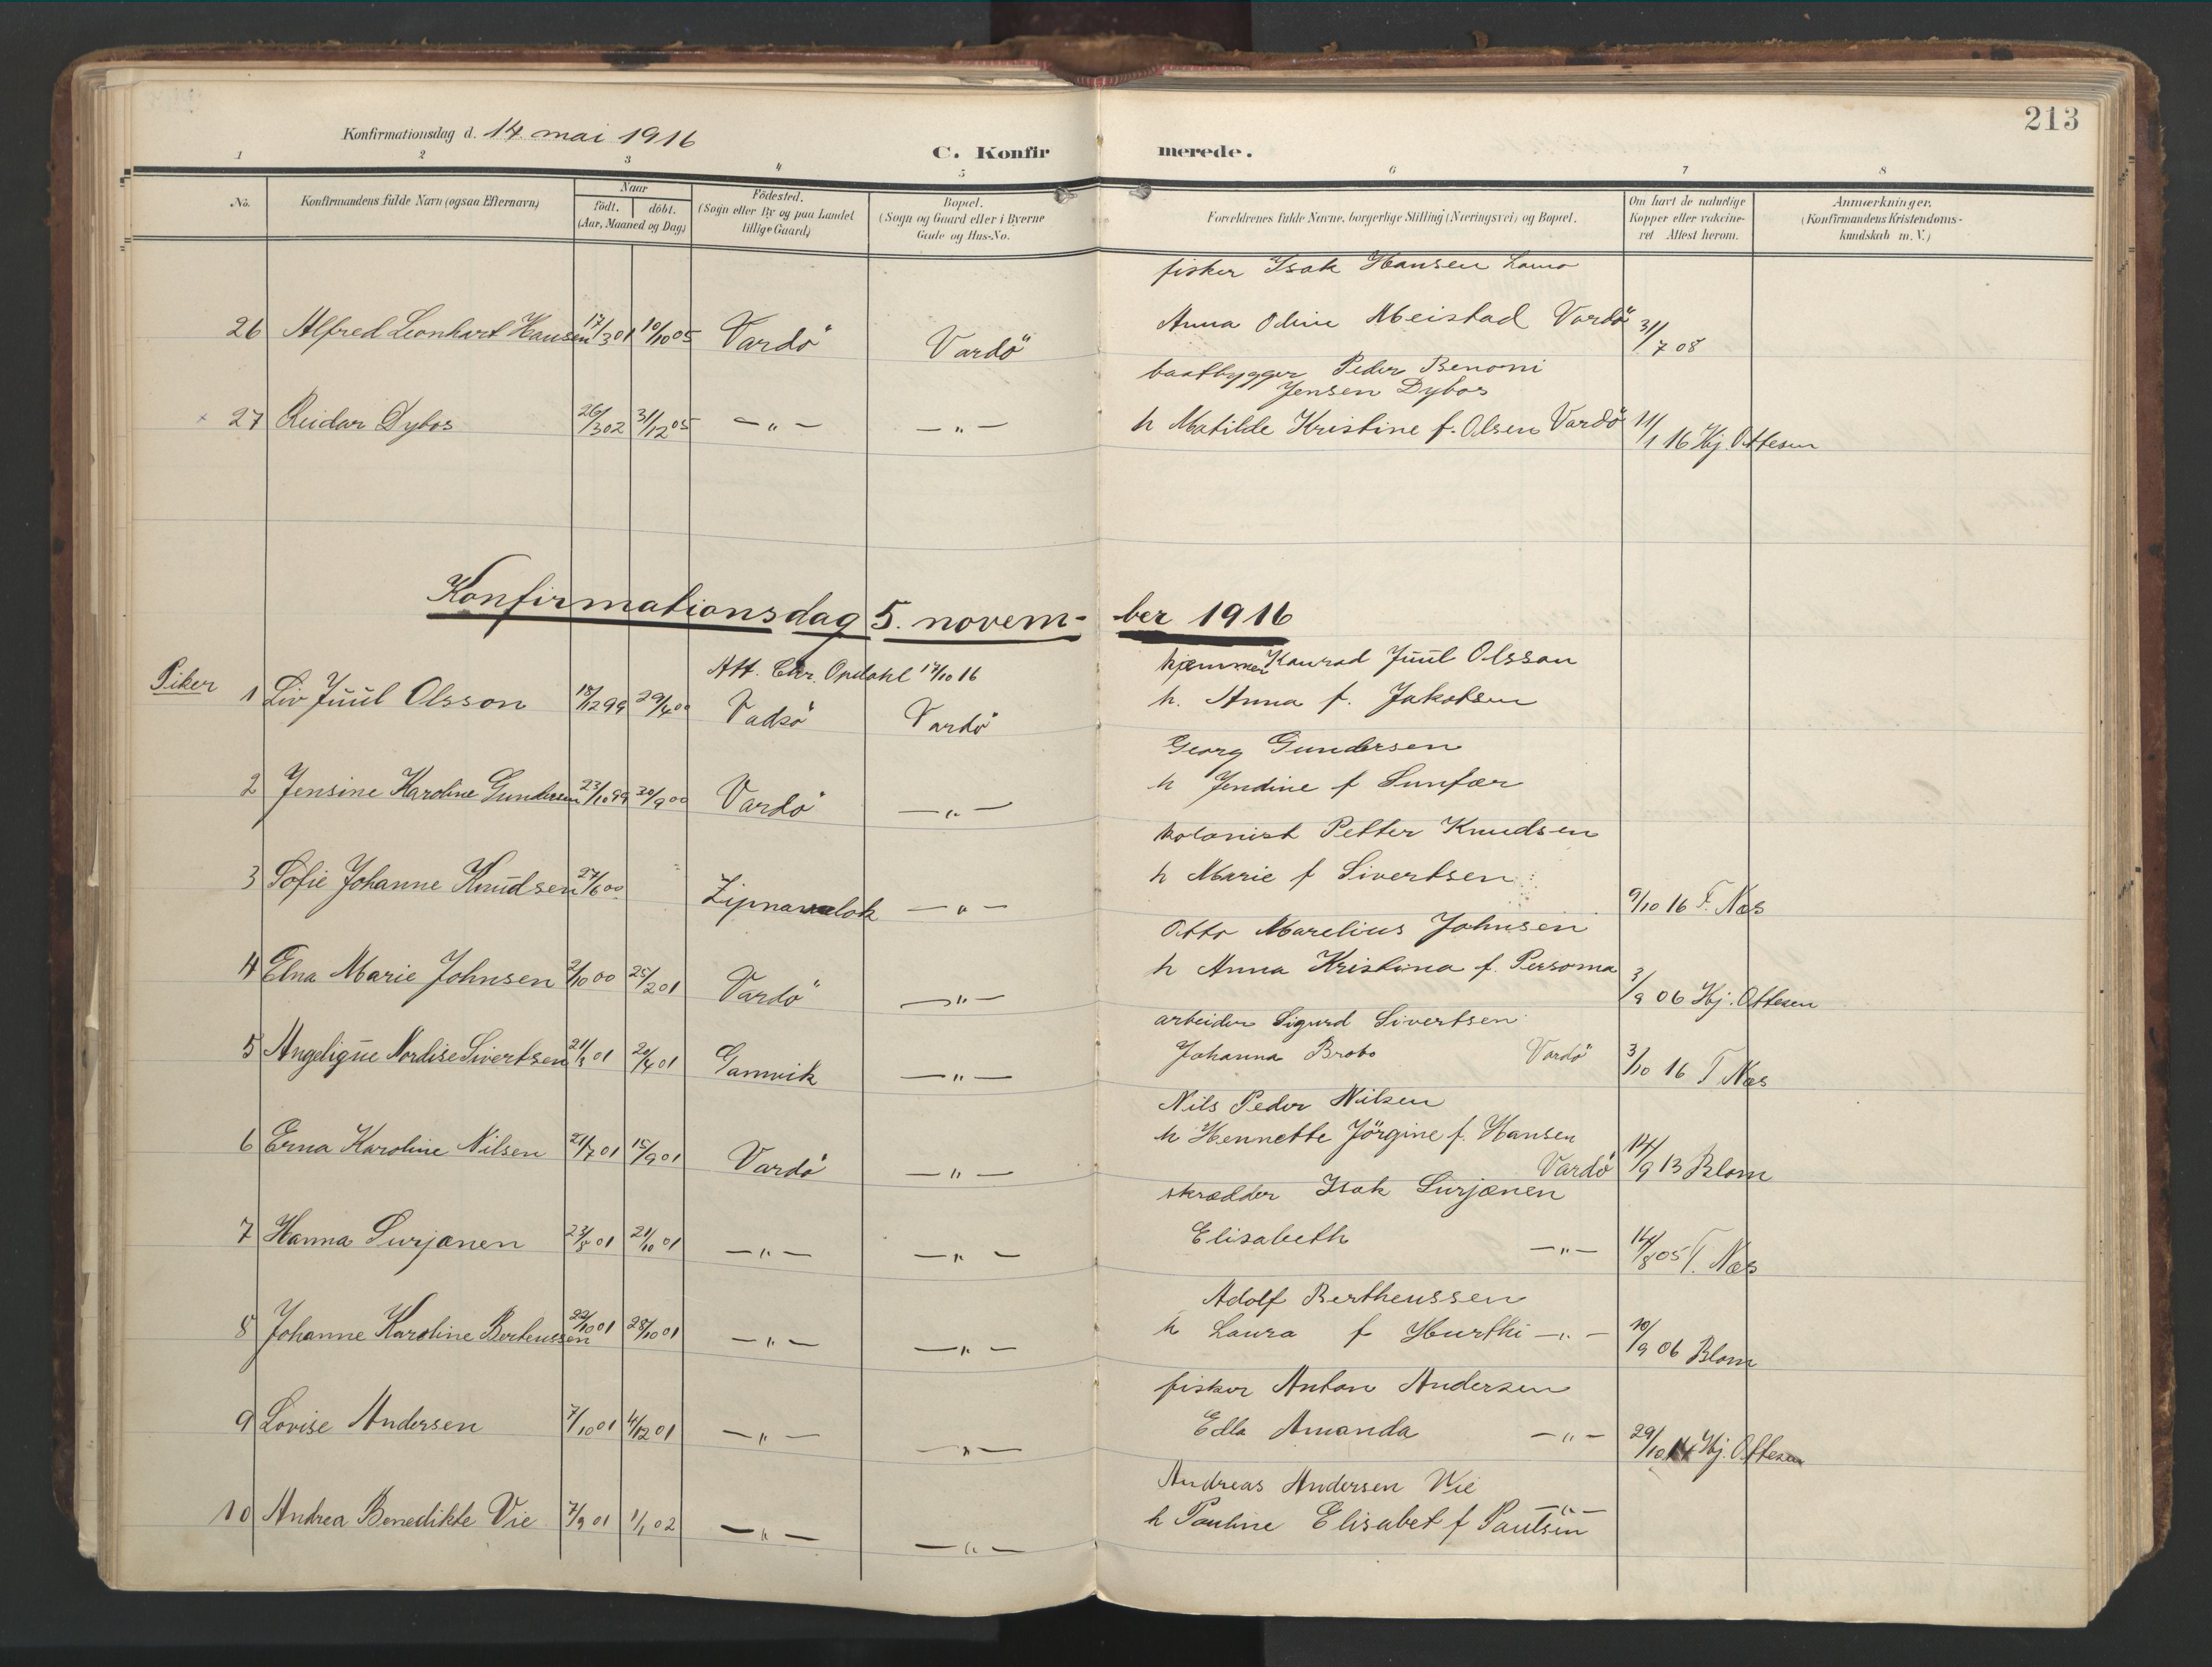 213
Konfirmationsdag d. 14. mai 1916
C. Konfirmerede.
1 2 3 4 5 6 7 8
No.
Konfirmandens fulde Navn (ogsaa Efternavn)
Naar
födt. | döbt.
(Aar, Maaned og Dag)
Födested.
(Sogn eller By og paa Landet
tillige Gaard)
Bopæl.
(Sogn og Gaard eller i Byerne
Gade og Hus-No.
Forældrenes fulde Navne, borgerlige Stilling (Næringsvei) og Bopæl.
Om havt de naturlige
Kopper eller vakcine-
ret Attest herom.
Anmærkninger.
(Konfirmandens Kristendoms-
kundskab m. V.)
fisker Isak Hansen
26 Alfred Leonhart Hansen 17/3 01 10/10 05 Vardö Vardö Anna Oline Meistad Vardö 31/7 08
baatbygger Peder Benoni
Jensen Dybos
27 Reidar Dybos 26/3 02 31/12 05 —„— —„— h Matilde Kristine f. Olsen Vardö 11/1 16 Hj. Ottesen
Konfirmationsdag 5. novem-ber 1916
Att. Chr. Opdahl 17/10 16 Konrad Juul Olsson
Piker 1 Liv Juul Olsson 18/12 99 29/4 00 Vadsö Vardö h. Anna f. Jakobsen
Georg Gundersen
2 Jensine Karoline Gundersen 23/10 99 30/9 00 Vardö —„— h Jendine f Sunfær
kolonist Petter Knudsen
3 Sofie Johanne Knudsen 27/6 00 Zipnavolok —„— h Marie f Sivertsen 9/10 16 T. Næs
Otto Marelius Johnsen
4 Elna Marie Johnsen 2/10 00 25/2 01 Vardö —„— h Anna Kristina f. Persoma 3/9 06 Hj. Ottesen
arbeider Sigurd Sivertsen
5 Angelique Nordise Sivertsen 21/3 01 20/4 01 Gamvik —„— Johanna Brobo Vardö 3/10 16 T Næs
Nils Peder Nilsen
6 Erna Karoline Nilsen 21/7 01 15/9 01 Vardö —„— h Hennette Jörgine f. Hansen
Vardö 14/9 13 Blom
skrædder Isak Surjænen
7 Hanna Surjænen 23/8 01 21/10 01 —„— —„— Elisabeth —„— 14/8 05 T. Næs
Adolf Bertheussen
8 Johanne Karoline Berteussen 22/10 01 28/10 01 —„— —„— h Laura f Hurthi —„— 10/9 06 Blom
fisker Anton Andersen
9 Lovise Andersen 7/10 01 4/12 01 —„— —„— Ella Amanda —„— 29/10 14 Hj. Ottesen
Andreas Andersen Vie
10 Andrea Benedikte Vie 7/9 01 1/1 02 —„— —„— h Pauline Elisabet f Pautsin —„—